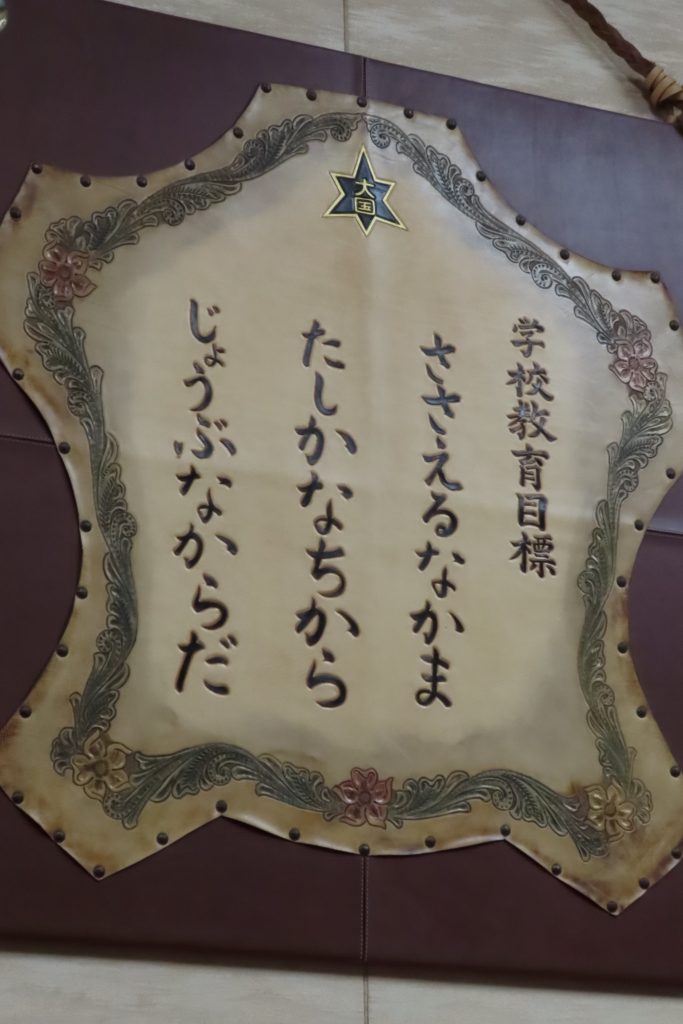 大国
学校教育目標
ささえるなかま
たしかなちから
じょうぶなからだ